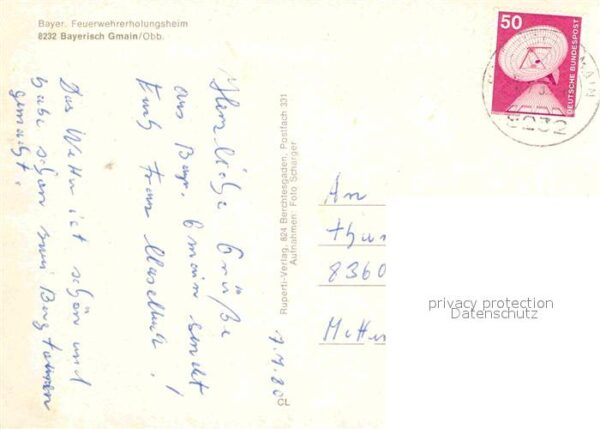 Bayer. Feuerwehrerholungsheim
8232 Bayerisch Gmain/Obb.
Herzliche Grüße
aus Bayr. Gmain sendet
Euch Franz
Das Wetter ist schön und
habe schon zwei Bergtouren
gemacht.
7.7.80
Ruperti-Verlag, 824 Berchtesgaden, Postfach 331
Aufnahmen: Foto Scharger
CL
50
DEUTSCHE BUNDESPOST
8232
An
8360
privacy protection
Datenschutz